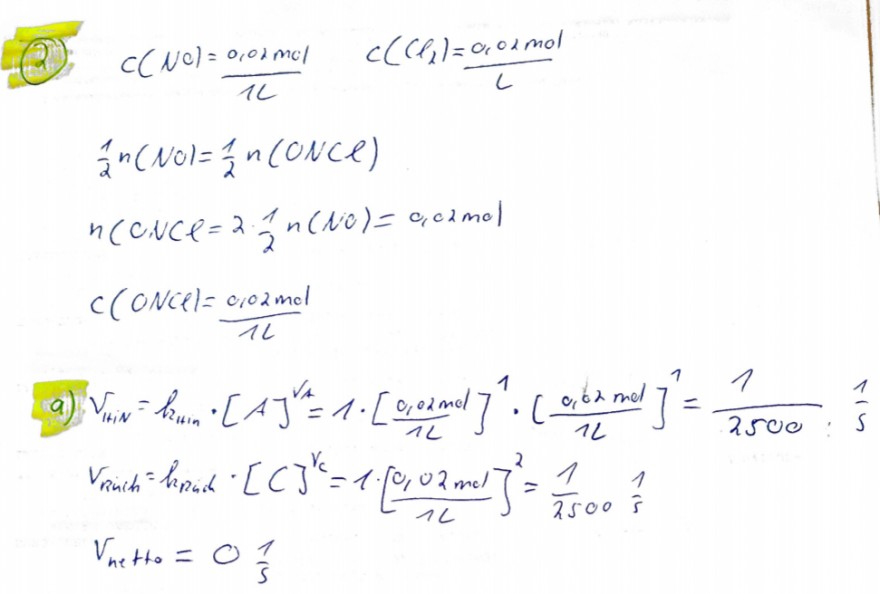 2) c(NO) = 0,02 mol / 1L   c(Cl₂) = 0,02 mol / L
1/2 n(NO) = 1/2 n(ONCl)
n(ONCl = 2 · 1/2 n(NO) = 0,02 mol
c(ONCl) = 0,02 mol / 1L
a) V_Hin = k_Hin · [A]^νA = 1 · [0,02 mol / 1L]^1 · [0,02 mol / 1L]^1 = 1 / 2500 · 1/s
V_Rück = k_Rück · [C]^νC = 1 · [0,02 mol / 1L]^2 = 1 / 2500 1/s
V_netto = 0 1/s